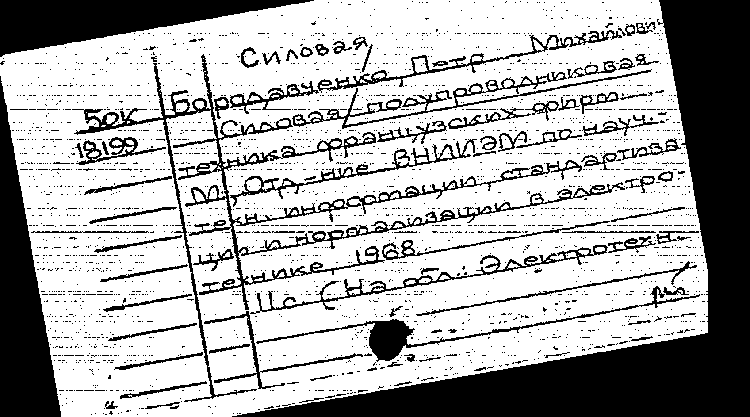 Силовая
Бородавченко, Петр Михайлович
50к
Силовая полупроводниковая
18199
техника французских фирм.
М., Отд-ние ВНИИЭМ по науч.-
техн. информации, стандартиза-
ции и нормализации в электро-
технике, 1968.
11 с. (На обл.: Электротехн.